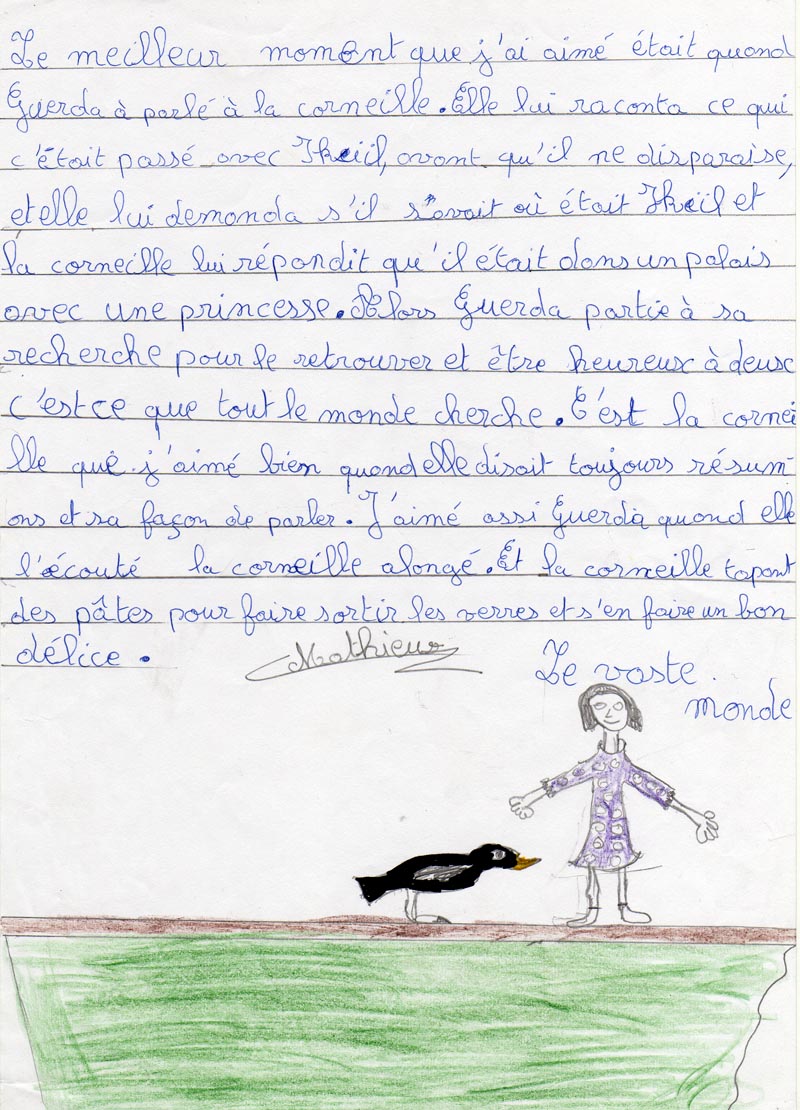 Le meilleur moment que j'ai aimé était quand
Guerda à parlé à la corneille. Elle lui raconta ce qui
c'était passé avec Jkeiil, avant qu'il ne disparaise,
et elle lui demanda s'il s'avait où était Jkeiil et
la corneille lui répondit qu'il était dans un palais
avec une princesse. Alors Guerda partie à sa
recherche pour le retrouver et être heureux à deux
c'est ce que tout le monde cherche. C'est la cornei
lle que j'aimé bien quand elle disait toujours résum-
ons et sa façon de parler. J'aimé assi Guerda quand elle
l'écouté la corneille alongé. Et la corneille tapant
des pâtes pour faire sortir les verres et s'en faire un bon
délice.
Mathieu
Le vaste
monde